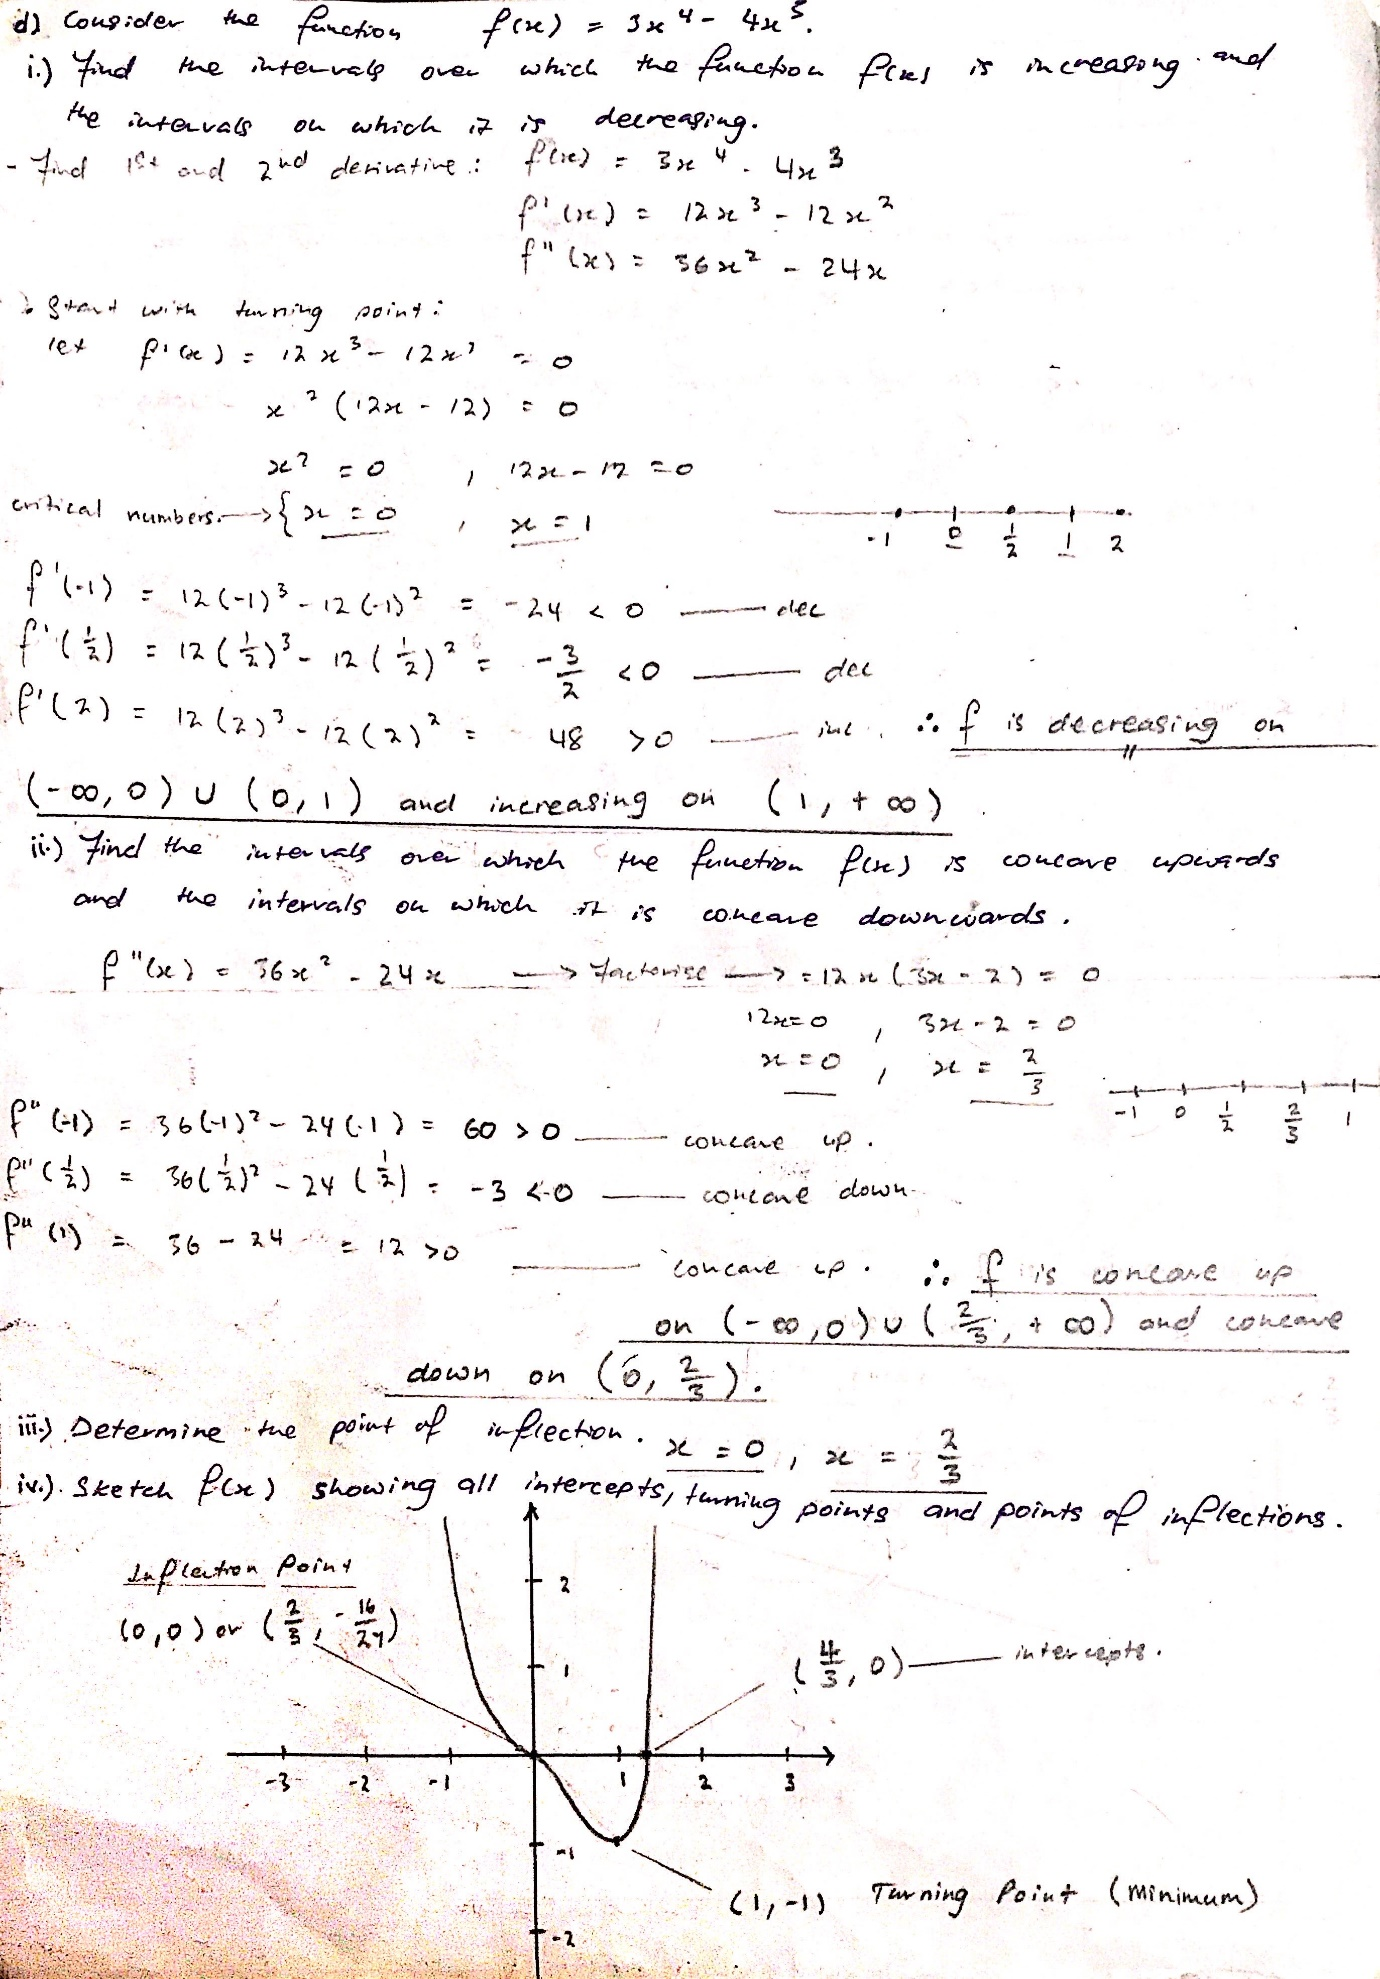 d) Consider the function f(x) = 3x⁴ - 4x⁵.
i.) Find the intervals over which the function f(x) is increasing and
the intervals on which it is decreasing.
- Find 1st and 2nd derivative: f(x) = 3x⁴ - 4x³
f'(x) = 12x³ - 12x²
f"(x) = 36x² - 24x
Start with turning point:
let f'(x) = 12x³ - 12x² = 0
x² (12x - 12) = 0
x² = 0 , 12x - 12 = 0
critical numbers. → { x = 0 , x = 1
-1 0 1/2 1 2
f'(-1) = 12(-1)³ - 12(-1)² = -24 < 0 — dec
f'(1/2) = 12(1/2)³ - 12(1/2)² = -3/2 < 0 — dec
f'(2) = 12(2)³ - 12(2)² = 48 > 0 — inc. ∴ f is decreasing on
(-∞, 0) ∪ (0, 1) and increasing on (1, +∞)
ii.) Find the intervals over which the function f(x) is concave upwards
and the intervals on which it is concave downwards.
f"(x) = 36x² - 24x → Factorise → = 12x(3x - 2) = 0
12x=0 , 3x - 2 = 0
x = 0 , x = 2/3
-1 0 1/2 2/3 1
f"(-1) = 36(-1)² - 24(-1) = 60 > 0 — concave up.
f"(1/2) = 36(1/2)² - 24(1/2) = -3 < 0 — concave down
f"(1) = 36 - 24 = 12 > 0 — concave up. ∴ f is concave up
on (-∞, 0) ∪ (2/3, +∞) and concave
down on (0, 2/3).
iii.) Determine the point of inflection. x = 0, x = 2/3
iv.) Sketch f(x) showing all intercepts, turning points and points of inflections.
Inflection Point
(0,0) or (2/3, -16/27)
2
1
(4/3, 0) — intercepts.
-3 -2 -1 1 2 3
-1
(1,-1) Turning Point (Minimum)
-2